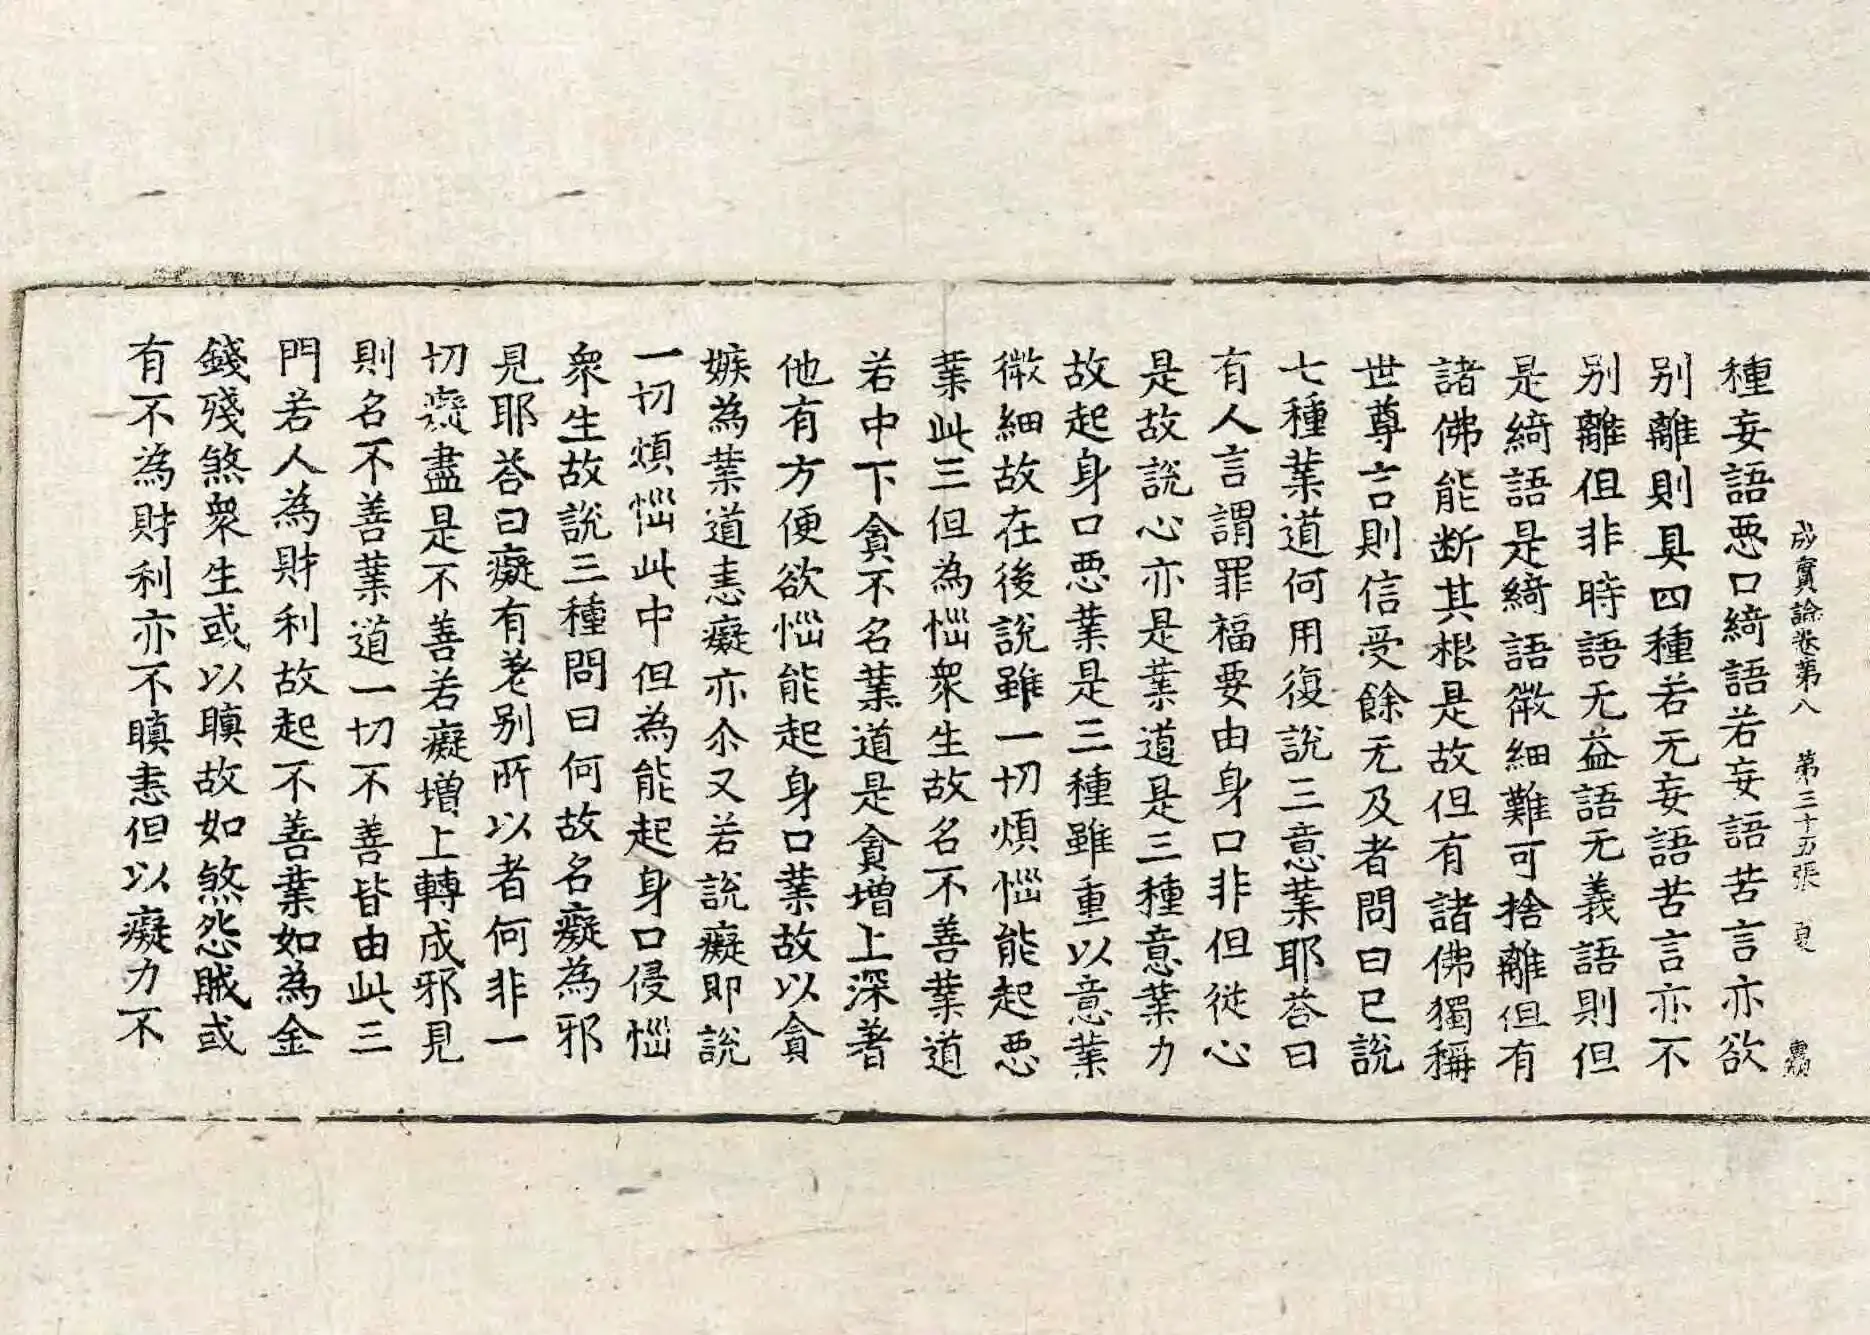 成實論卷第八 第三十五張 夏
種妄語惡口綺語若妄語苦言亦欲
別離則具四種若无妄語苦言亦不
別離但非時語无益語无義語則但
是綺語是綺語微細難可捨離但有
諸佛能斷其根是故但有諸佛獨稱
世尊言則信受餘无及者問曰已說
七種業道何用復說三意業耶荅曰
有人言謂罪福要由身口非但從心
是故說心亦是業道是三種意業力
故起身口惡業是三種雖重以意業
微細故在後說雖一切煩惱能起惡
業此三但為惱衆生故名不善業道
若中下貪不名業道是貪增上深著
他有方便欲惱能起身口業故以貪
嫉為業道恚癡亦尒又若說癡即說
一切煩惱此中但為能起身口侵惱
衆生故說三種問曰何故名癡為邪
見耶荅曰癡有差別所以者何非一
切癡盡是不善若癡增上轉成邪見
則名不善業道一切不善皆由此三
門若人為財利故起不善業如為金
錢殘煞衆生或以瞋故如煞怨賊或
有不為財利亦不瞋恚但以癡力不